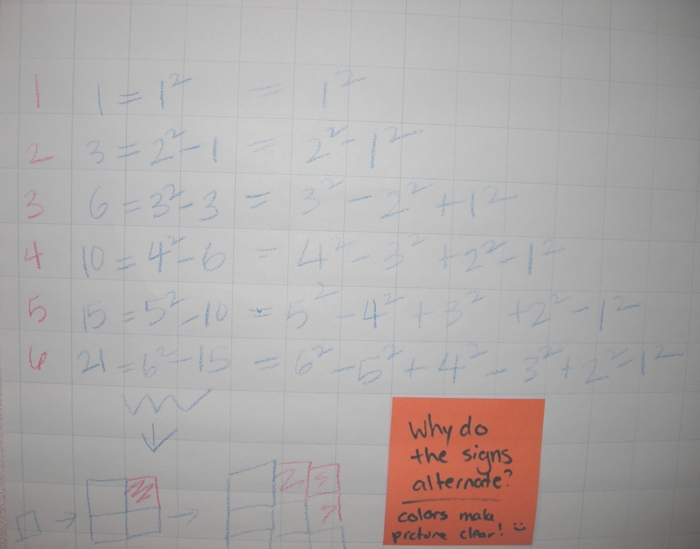 1 1 = 1² = 1²
2 3 = 2² - 1 = 2² - 1²
3 6 = 3² - 3 = 3² - 2² + 1²
4 10 = 4² - 6 = 4² - 3² + 2² - 1²
5 15 = 5² - 10 = 5² - 4² + 3² + 2² - 1²
6 21 = 6² - 15 = 6² - 5² + 4² - 3² + 2² - 1²
Why do
the signs
alternate?
colors make
picture clear!